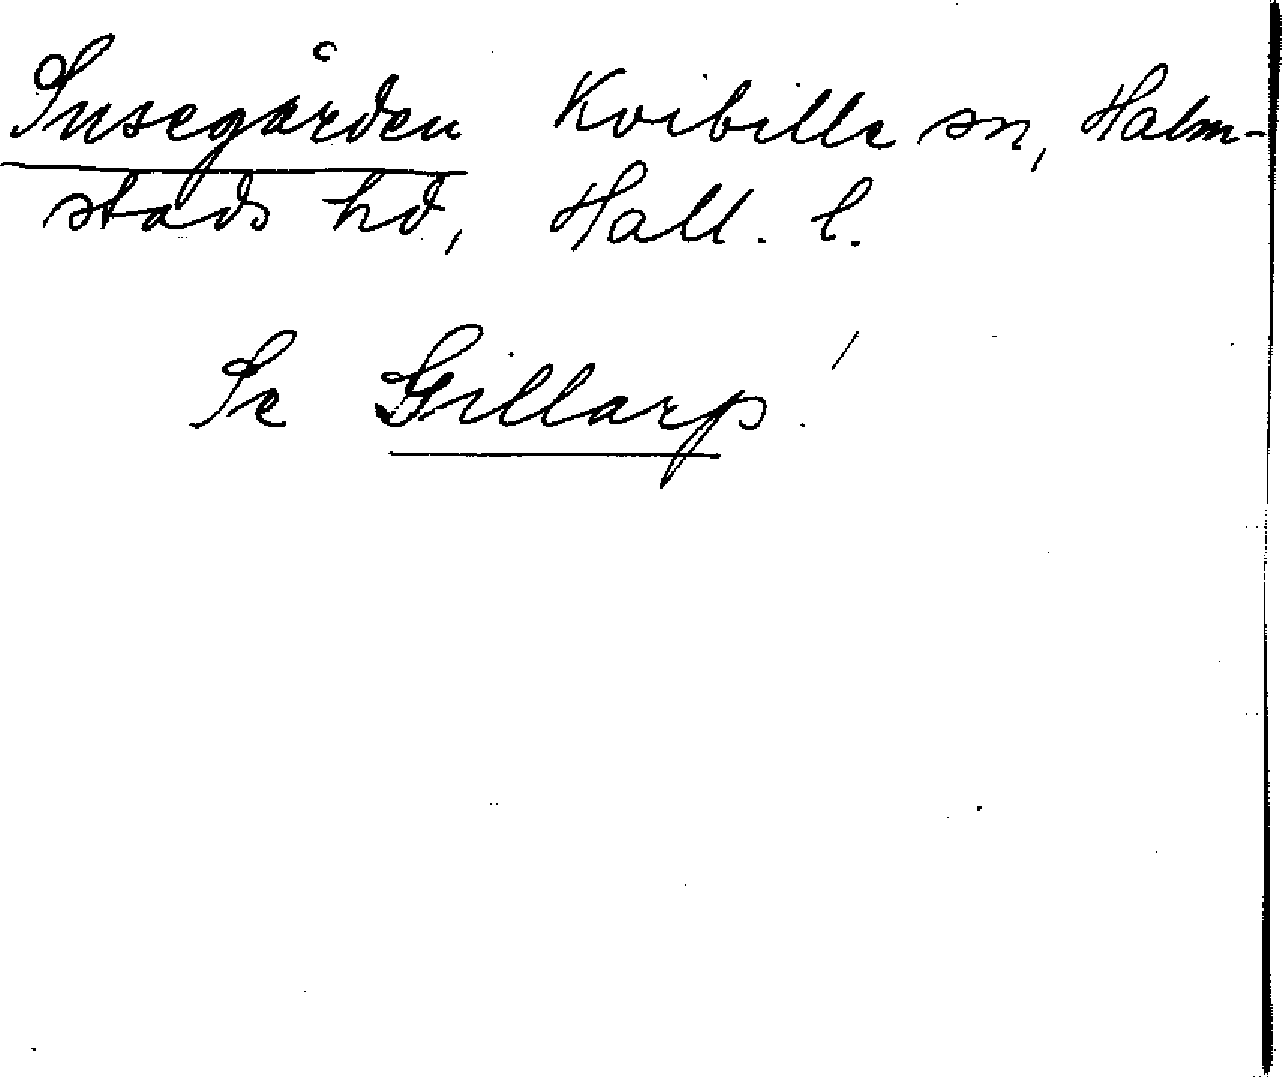 Susegården Kvibille sn, Halm-
stads hd, Hall. l.
Se Gillarp!